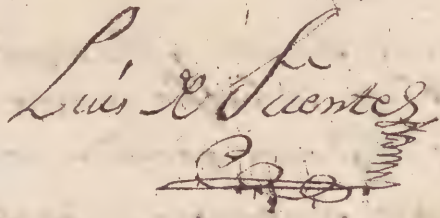 Luis de Fuentes